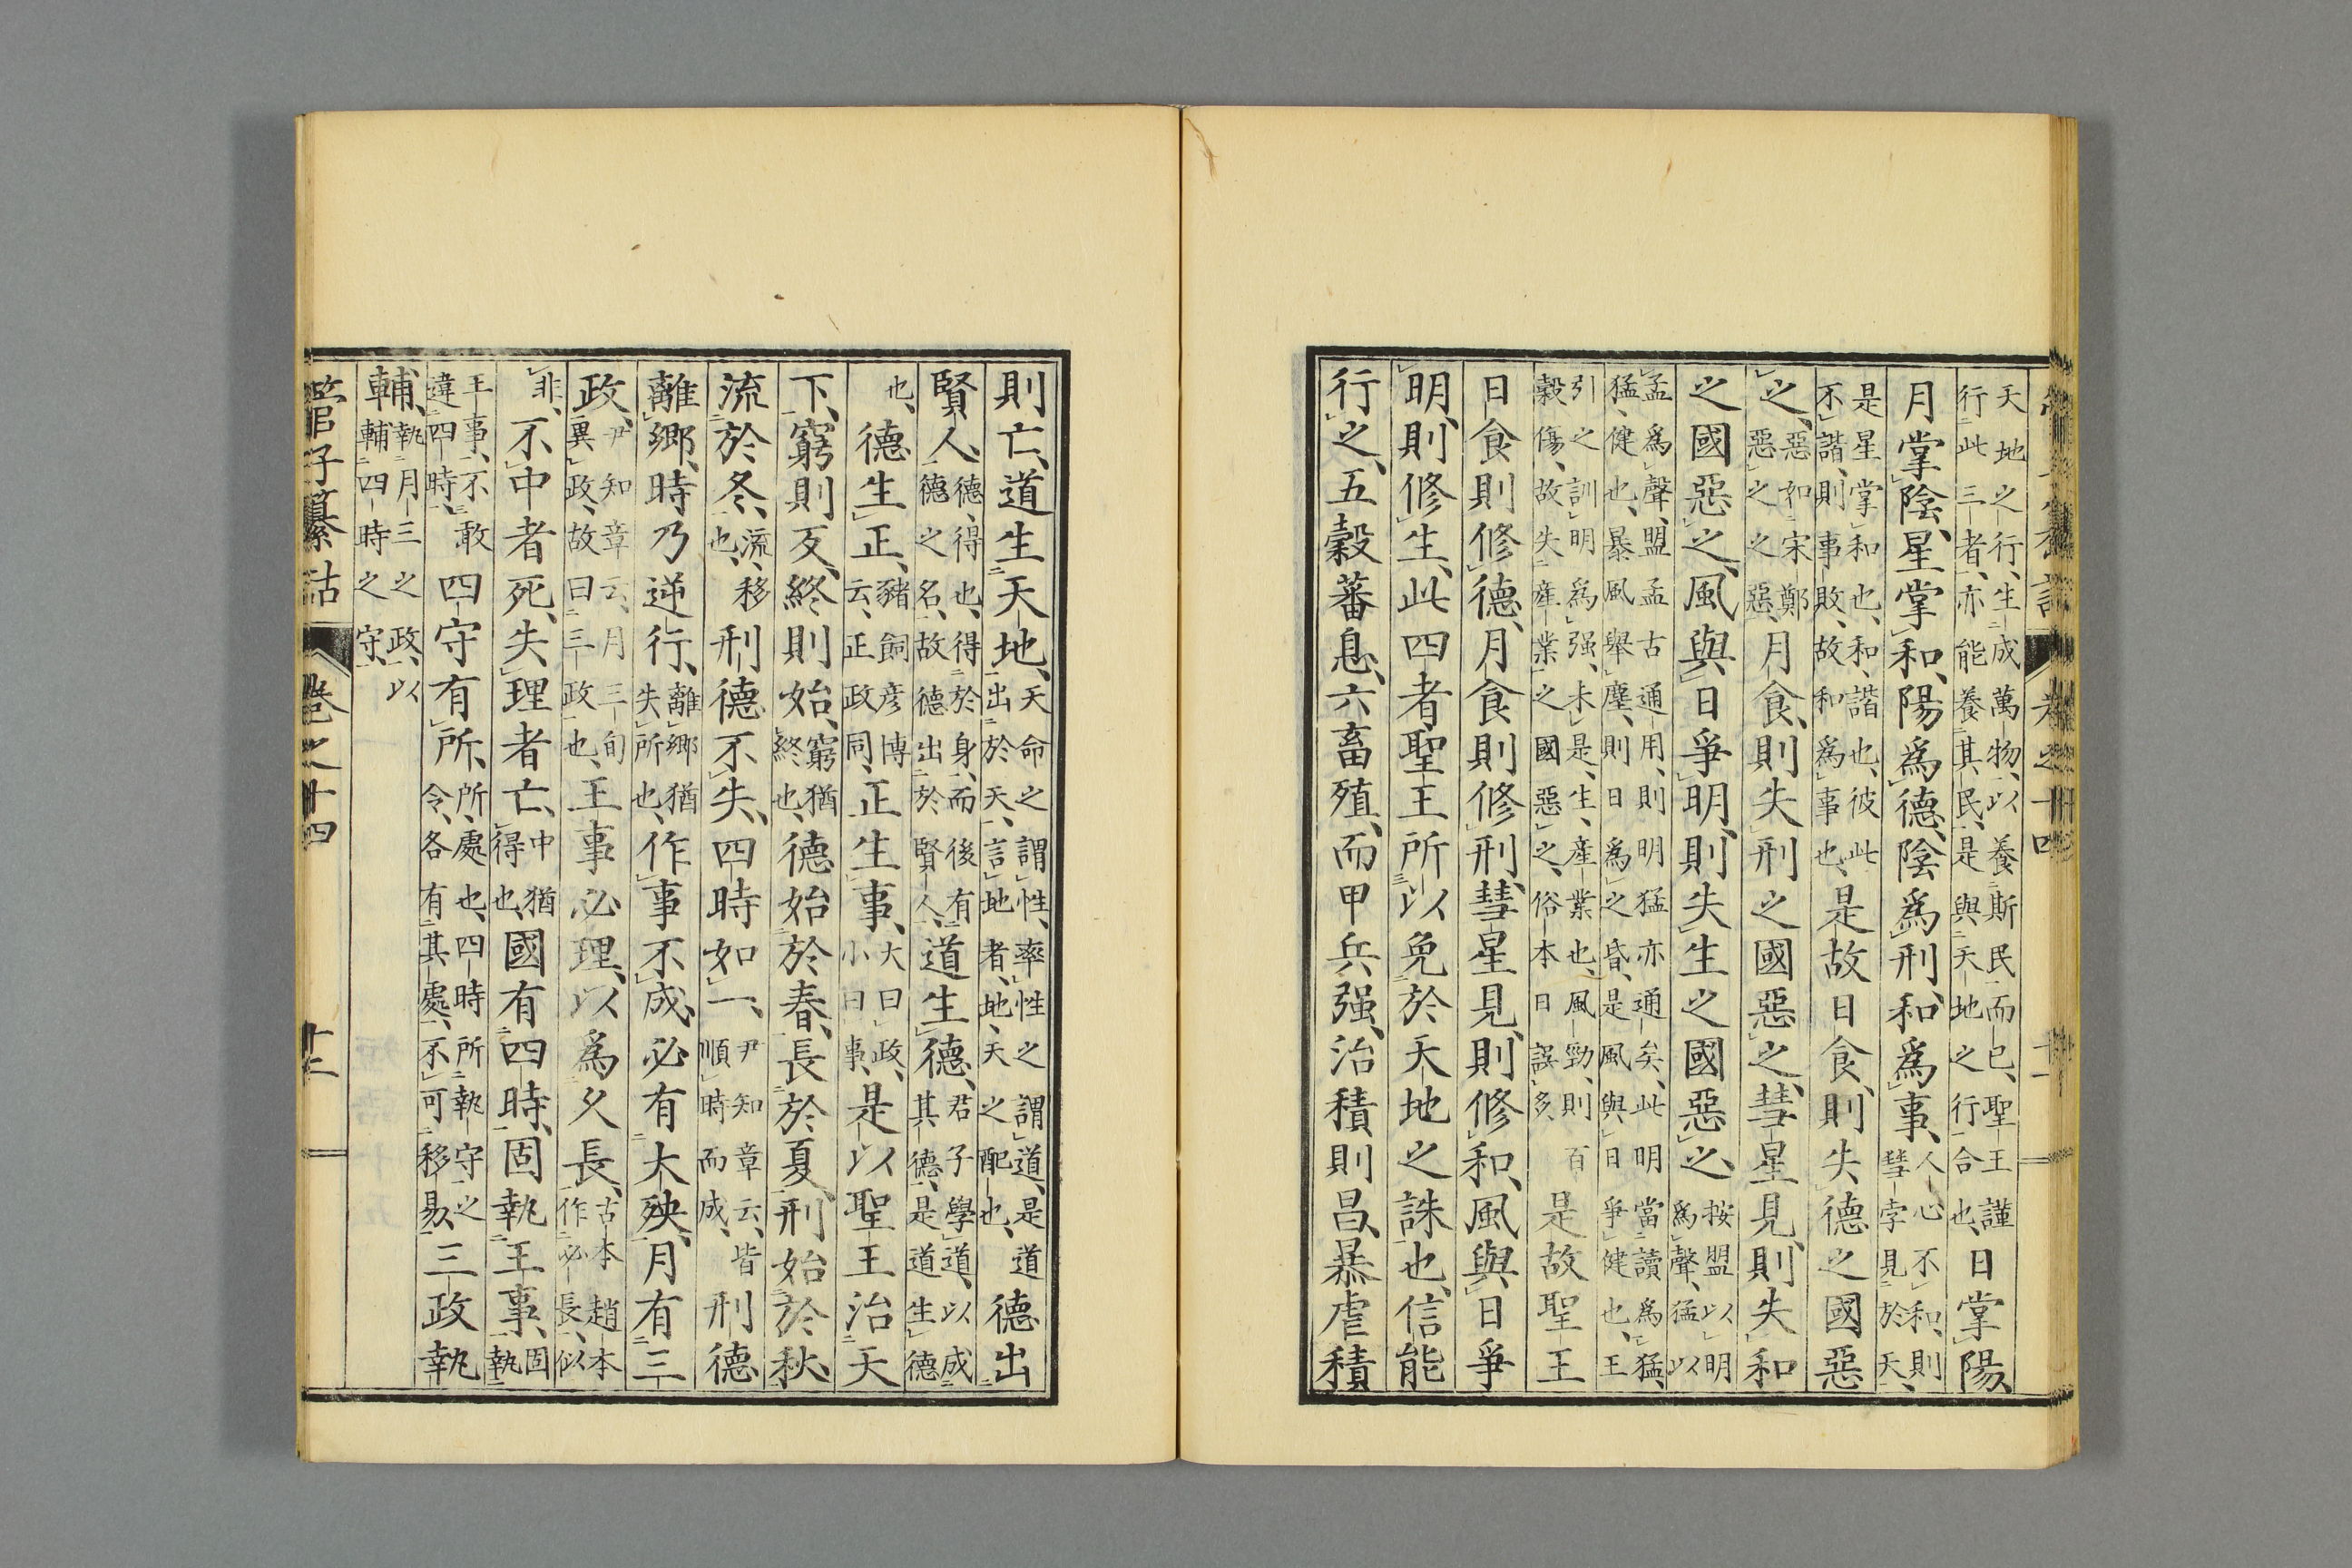 卷之十四 十一
天地之行、生成萬物、以養斯民而已、聖王謹行此三者、亦能養其民、是與天地之行合也、日掌陽、
月掌陰、星掌和、陽爲德、陰爲刑、和爲事、人心不和、則彗孛見於天、
是星掌和也、和、諧也、彼此不諧、則事敗、故和爲事也、是故日食、則失德之國惡
之、惡如宋鄭惡之之惡、月食、則失刑之國惡之、彗星見、則失和
之國惡之、風與日爭明、則失生之國惡之、按盟以明爲聲、猛以
孟爲聲、盟孟古通用、則明猛亦通矣、此明當讀爲猛、猛、健也、暴風舉塵、則日爲之昏、是風與日爭健也、王
引之訓明爲强、未是、生、産業也、風勁、則百穀傷、故失産業之國惡之、俗本日誤多、是故聖王
日食則修德、月食則修刑、彗星見、則修和、風與日爭
明、則修生、此四者聖王所以免於天地之誅也、信能
行之、五穀蕃息、六畜殖、而甲兵强、治積則昌、暴虐積
則亡、道生天地、天命之謂性、率性之謂道、是道出於天、言地者、地、天之配也、德出
賢人、德、得也、得於身、而後有德之名、故德出於賢人、道生德、君子學道、以成其德、是道生德
也、德生正、豬飼彦博云、正政同、正生事、大曰政、小曰事、是以聖王治天
下、窮則反、終則始、窮猶終也、德始於春、長於夏、刑始於秋、
流於冬、流、移也、刑德不失、四時如一、尹知章云、皆順時而成、刑德
離郷、時乃逆行、離郷猶失所也、作事不成、必有大殃、月有三
政、尹知章云、月三旬異政、故曰三政也、王事必理、以爲久長、古本趙本作必長、似
非、不中者死、失理者亡、中猶得也、國有四時、固執王事、固執
王事、不敢違四時、四守有所、所、處也、四時所執守之令、各有其處、不可移易、三政執
輔、執月三之政、以輔四時之守、
管子纂詁 卷之十四 十二